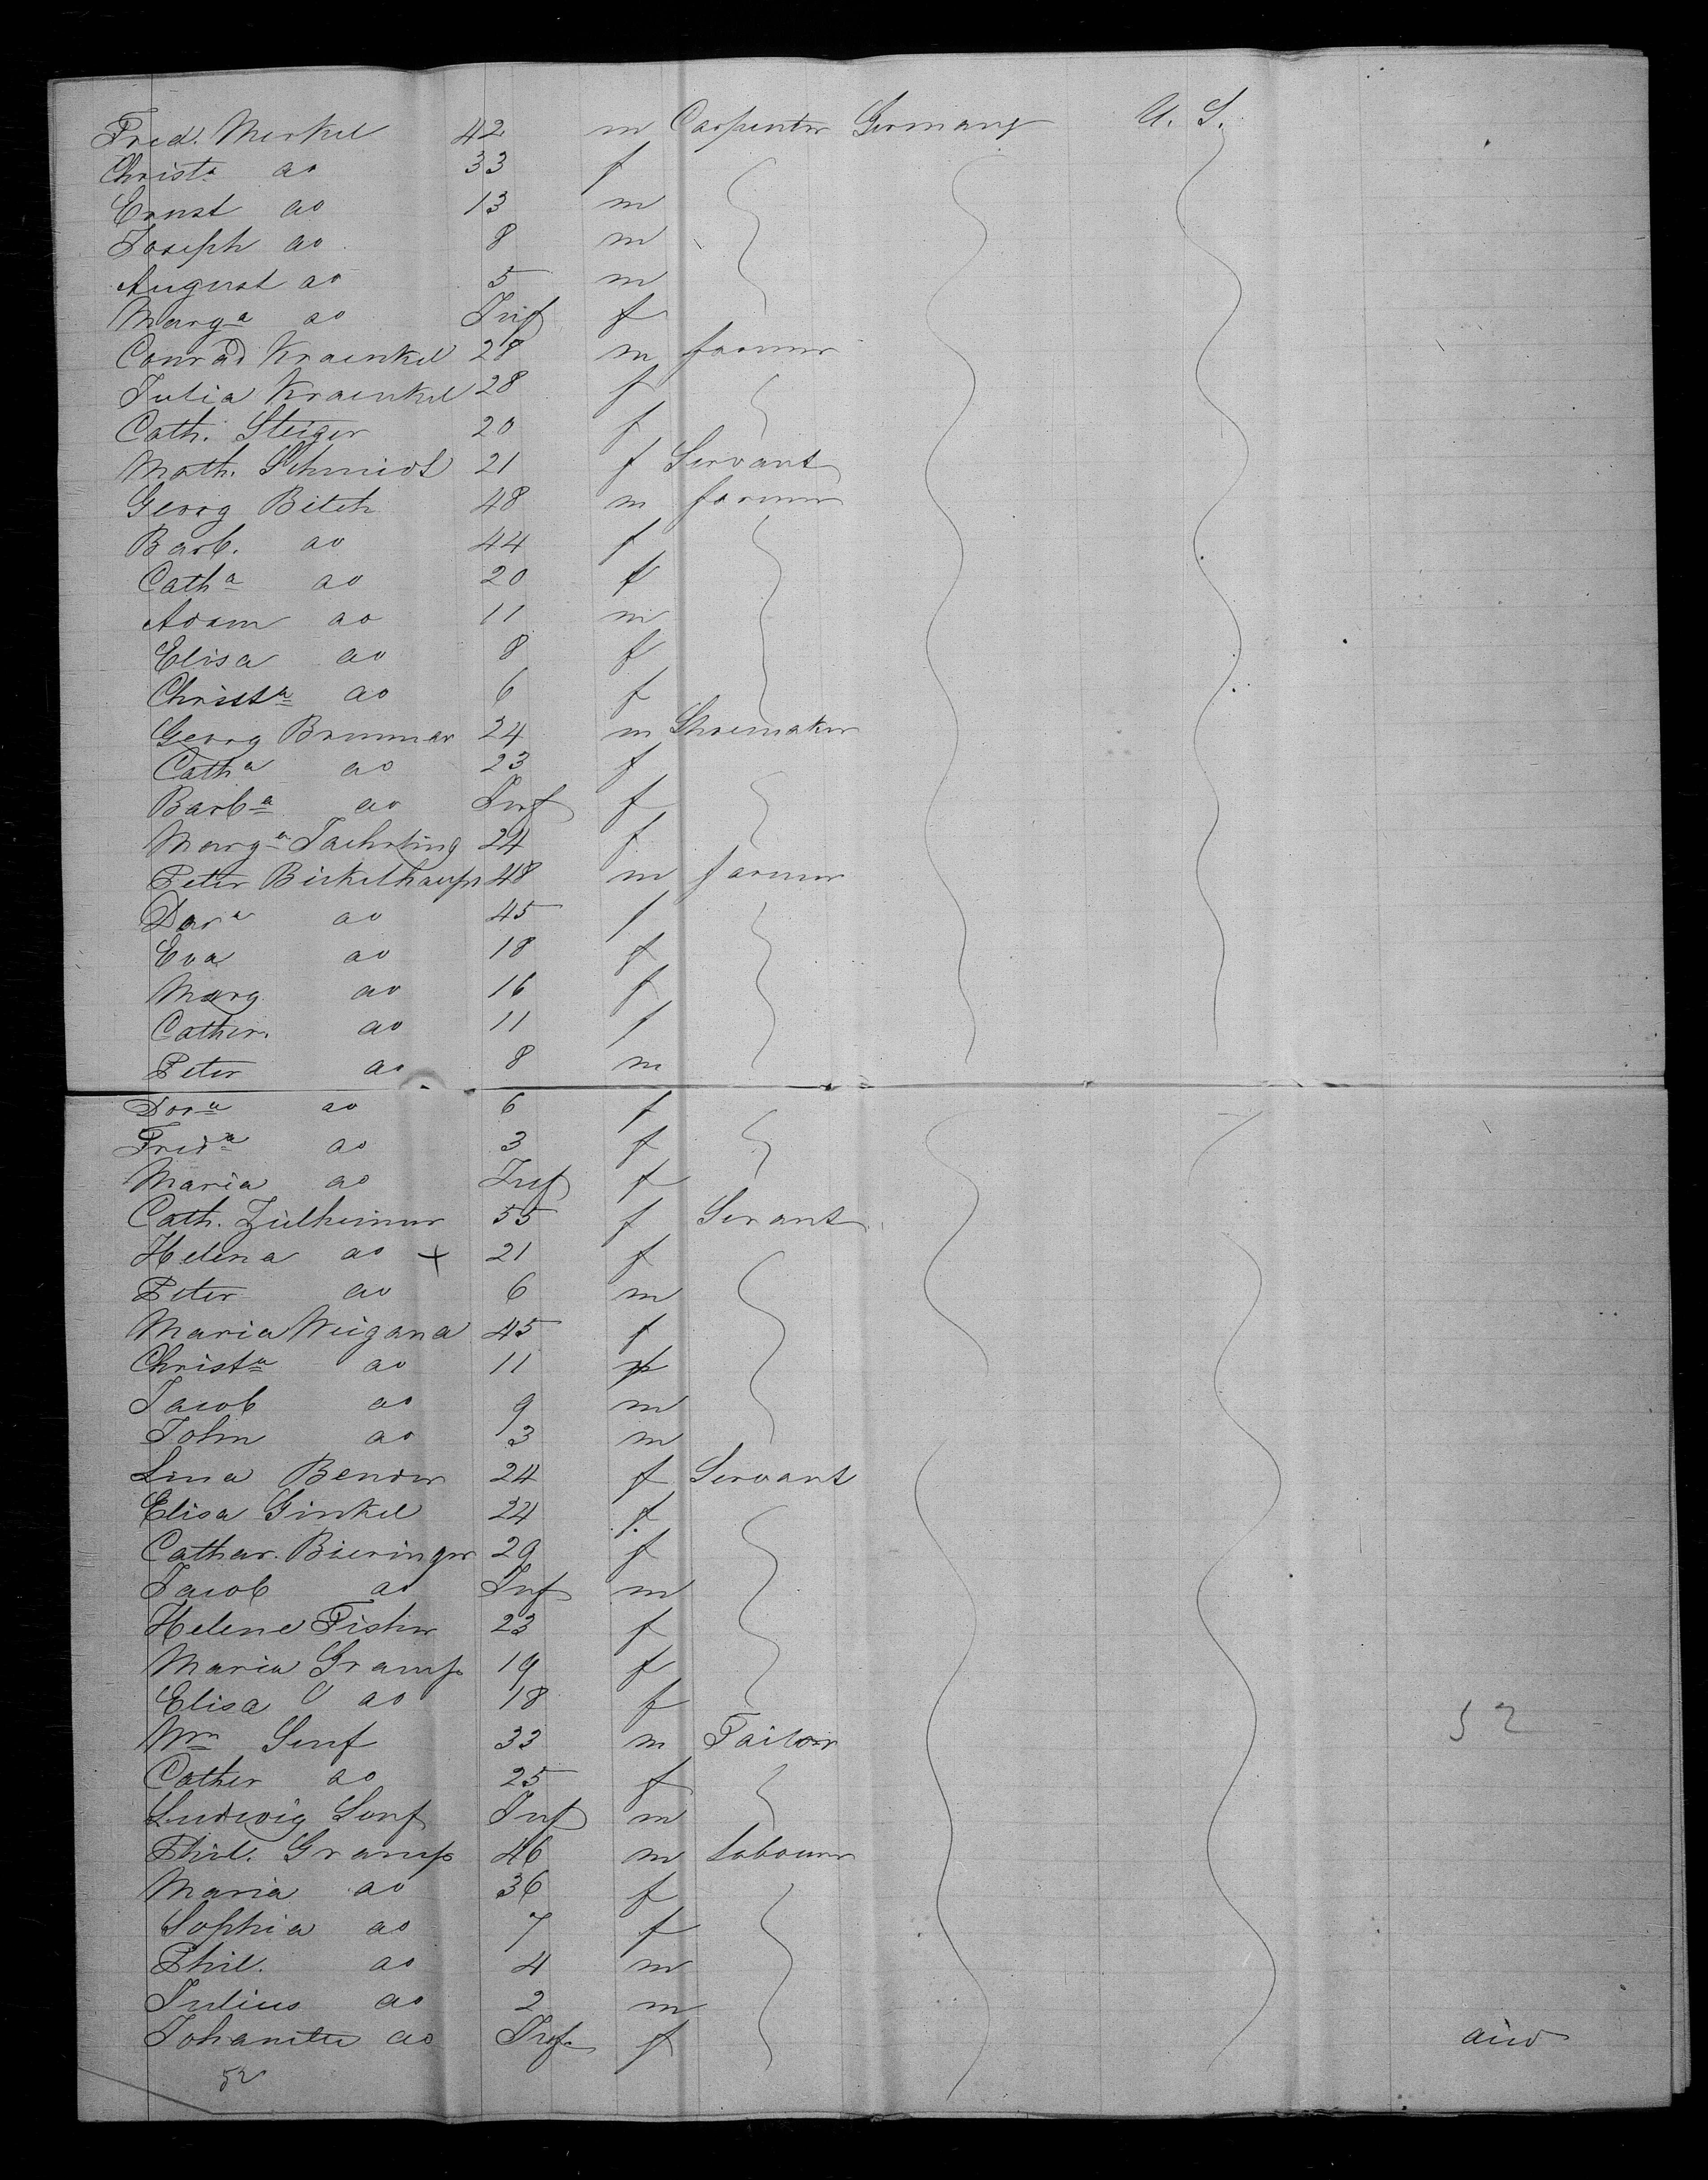 Fred. Merkel 42 m Carpenter Germany U. S.
Christa do 33 f
Ernst do 13 m
Joseph do 8 m
August do 5 m
Marga do Inf f
Conrad Kraenkel 28 m farmer
Julia Kraenkel 28 f
Cath. Steiger 20 f
Math. Schmidt 21 f Servant
Georg Bitch 48 m farmer
Barb. do 44 f
Catha do 20 f
Adam do 11 m
Elisa do 8 f
Christa do 6 f
Georg Brunner 24 m Shoemaker
Catha do 23 f
Barba do Inf f
Marga 24 f
Peter Bickelhaupt 48 m farmer
Dora do 45 f
Eva do 18 f
Marg do 16 f
Cather. do 11 f
Peter do 8 m
Dora do 6 f
Freda do 3 f
Maria do Inf f
Cath. 55 f Servant
Helena do + 21 f
Peter do 6 m
Maria Weigand 45 f
Christa do 11 f
Jacob do 9 m
John do 3 m
Lina Bender 24 f Servant
Elisa Ginkel 24 f
Cathar. Bieringer 29 f
Jacob do Inf m
Helene Fisher 23 f
Maria Gramp 19 f
Elisa do 18 f
Wm Senf 33 m Tailor 52
Cather do 25 f
Ludwig Senf Inf m
Phil. Gramp 46 m labourer
Maria do 36 f
Sophia do 7 f
Phil. do 4 m
Julius do 2 m
Johanette do Inf. f died
52